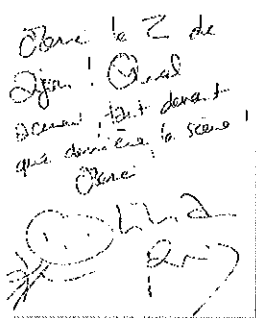 Merci le Z de
Dijon ! Quel
accueil, tant devant
que derrière la scène !
Merci